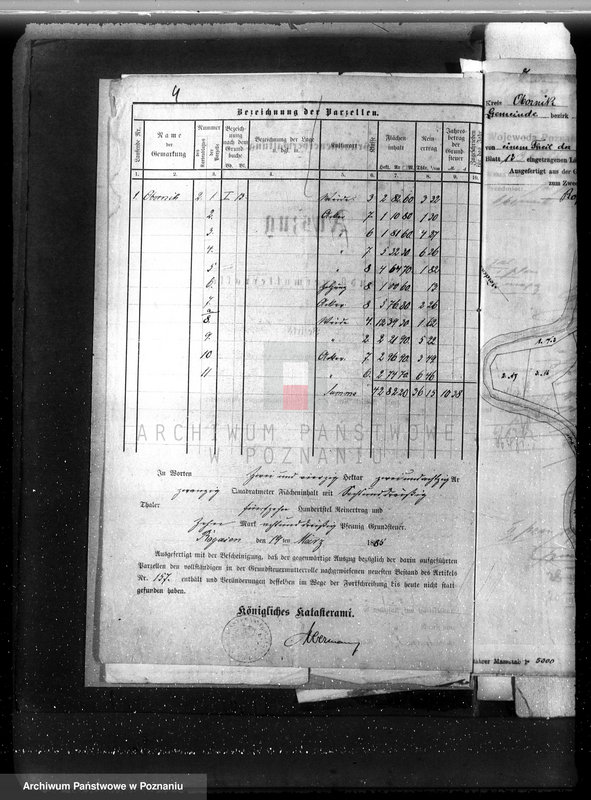 4
Bezeichnung der Parzellen.
Laufende Nr.
Name der Gemarkung
Nummer des Kartenblatts der Parzelle
Bezeichnung nach dem Grundbuche Bd. Bl.
Bezeichnung der Lage u. dgl. m.
Kulturart
Klasse
Flächeninhalt Hekt. Ar
Reinertrag Thlr.
Jahresbetrag der Grundsteuer
1. 2. 3. 4. 5. 6. 7. 8. 9. 10.
1 Obornik 2 1 I 13 Weide 3 2 82 60 3 32
2 Acker 7 1 10 80 1 30
3 " 6 1 81 60 4 27
4 " 7 5 32 30 6 26
5 " 8 4 64 70 1 82
6 8 1 00 60 13
7 Acker 8 5 76 30 2 26
8 Weide 4 12 39 30 1 62
9 2 2 21 90 5 22
10 Acker 7 2 96 90 3 49
11 " 6 2 74 70 6 46
Summa 42 82 20 36 15 10 38
In Worten zwei und vierzig Hektar zweiundachtzig Ar
zwanzig Quadratmeter Flächeninhalt mit Sechsunddreißig
Thaler fünfzehn Hundertstel Reinertrag und
zehn Mark achtunddreißig Pfennig Grundsteuer.
Rogasen den 14ten März 1885
Ausgefertigt mit der Bescheinigung, daß der gegenwärtige Auszug bezüglich der darin aufgeführten
Parzellen den vollständigen in der Grundsteuermutterrolle nachgewiesenen neuesten Bestand des Artikels
Nr. 157. enthält und Veränderungen desselben im Wege der Fortschreibung bis heute nicht statt
gefunden haben.
Königliches Katasteramt.
Kreis Obornik
Gemeinde bezirk
von einem Theil der
Blatt 12 eingetragenen
Ausgefertigt aus der
zum Zwe
Maasstab 5000
ARCHIWUM PAŃSTWOWE
W POZNANIU
Archiwum Państwowe w Poznaniu